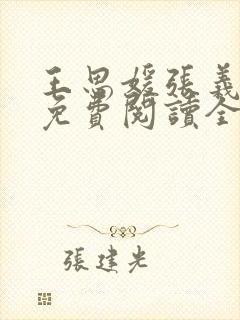 王思媛張義
免費閱讀全
張建光